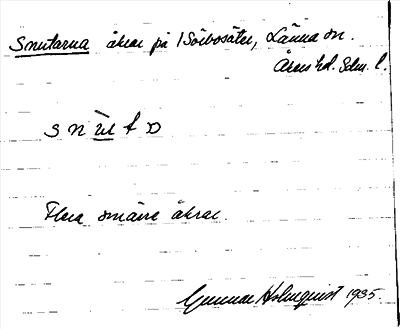 Snutarna åkrar på 1 Sörbosäter, Länna sn.
Åkers hd. Sdm. l.
snutɒ
Flera smärre åkrar.
Gunnar Holmquist 1935.